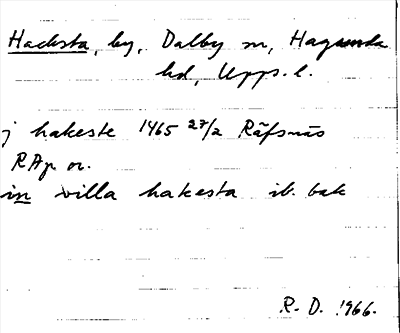 Hacksta, by, Dalby sn, Hagunda
hd, Upps. l.
j hakeste 1465 27/2 Räfsnäs
RAp or.
in villa hakesta ib. bak
R. D. 1966.